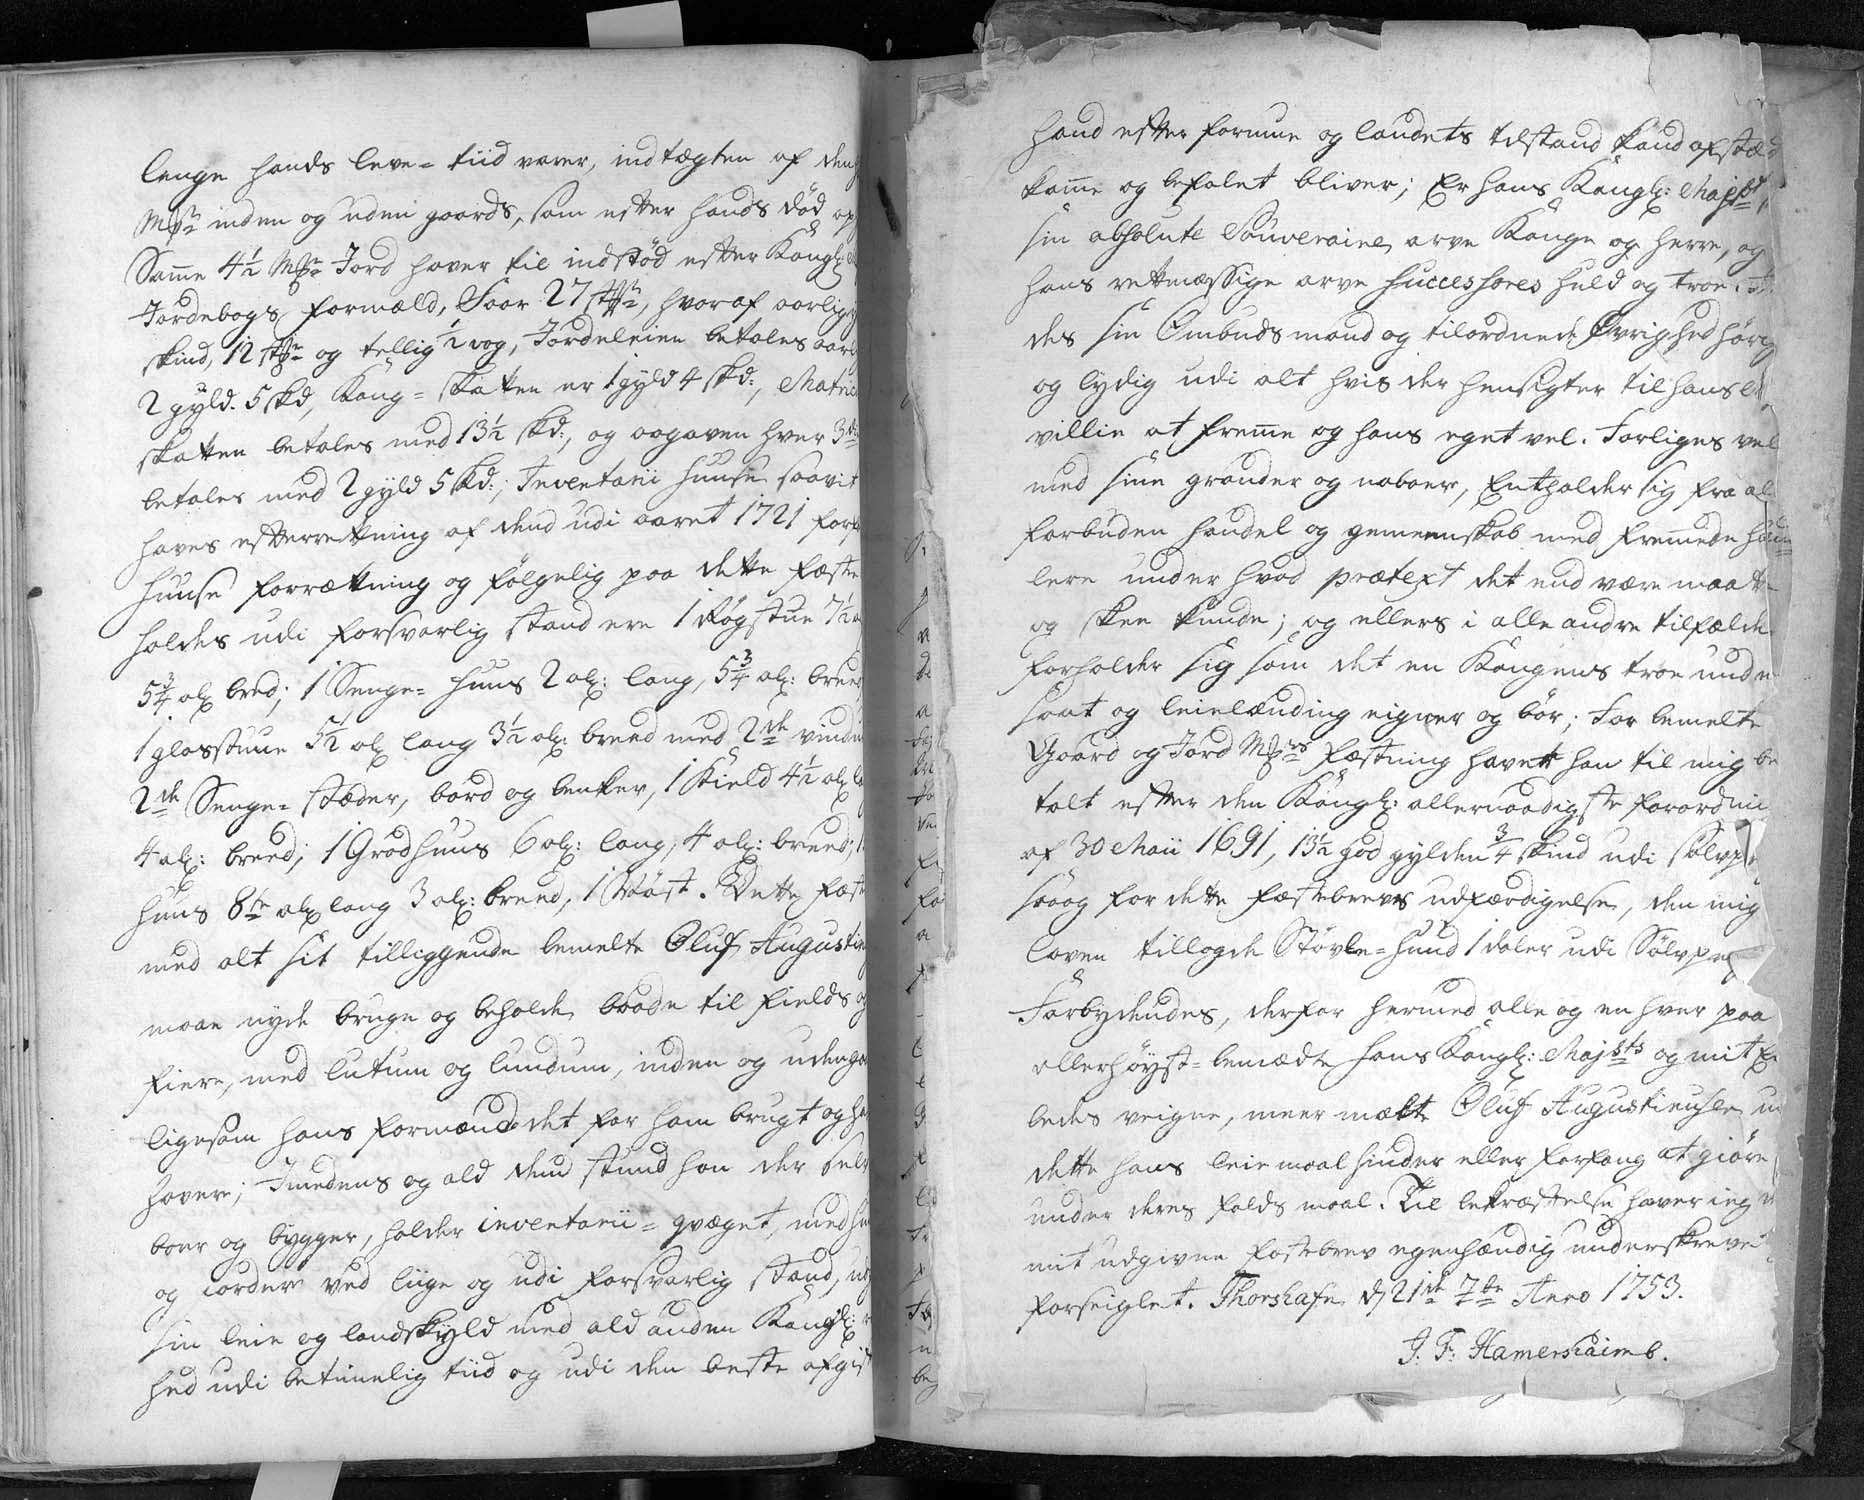 lenge hands leve= tiid varer, indtægten af den
Mrk inden og uden gaards, som efter hands død op
Samme 4½ Mrk Jord haver til indstød efter Kongl:
Jordebogs formæld, Faar 27 st, hvoraf aarlig
skind, 12 st og tellig ½ vog, Jordeleien betales aarl
2 gyld. 5 skd, Kong= skatten er 1 gyld 4 skd:, Matric
skatten betales med 13½ skd:, og aagaven hver 3de
betales med 2 gyld 5 skd:; Inventarii huuse saavit
haves efterretning af dend udi aaret 1721 for
huuse forrætning og følgelig paa dette fæste
holdes udi forsvarlig stand ere 1 Røgstue 7½
5¾ al: bred; 1 Senge= huus 2 al: lang, 5¾ al: breed
1 glasstuue 5½ al: lang 3½ al: breed med 2de vindu
2de Senge= stæder, bord og benker, 1 Kield 4½ al: l
4 al: breed; 1 Grødhuus 6 al: lang, 4 al: breed; 1
huus 8te al: lang 3 al: breed, 1 Nøst. Dette fæste
med alt sit tilliggende bemelte Oluf Augustin
maae nyde bruge og beholde baade til fields og
fiere, med lutum og lundum, inden og uden ga
ligesom hans formænd det for ham brugt og ha
havere; Imedens og ald dend stund han der selv
boer og bygger, holder inventarii= qvæget, med hu
og jorder ved liige og udi forsvarlig stand, ud
sin leie og landskyld med ald anden Kongl: r
hed udi betimelig tiid og udi den beste afgift
hand efter formue og landets tilstand kand afsted
kome og befalet bliver; Er hans Kongl: Majst
sin absolute Souveraine arve Konge og herre, og
hans retmæssige arve successores huld og troe.
des sin Ombuds mand og tilordnede Øvrighed hørig
og lydig udi alt hvis der hensigter til hans
villie at freme og hans eget vel. Forliges vel
med sine grander og naboer, Entholder sig fra al
forbuden handel og gemeenskab med fremede han
lere under hvad prætext det end være maatte
og skee kunde; og ellers i alle andre tilfælde
forholder sig som det en Kongens troe under
saat og leielænding eigner og bør; For bemelte
Gaard og Jord Mrkrs fæstning havett han til mig be
talt efter den Kongl: allernaadigste forordni
af 30 Maii 1691, 13½ god gylden ¾ skind udi sølvp
saaog for dette fæstebrevs udfærdigelse, den mig
loven tillagde Støvle= hund 1 daler udi Sølvpeng
Forbydendes, derfor hermed alle og enhver paa
allerhøyst= bemædte hans Kongl: Majsts og mit Em
bedes veigne, meer mælte Oluf Augustinusen ud
dette hans leiemaal hinder eller forfang at giøre
under deres falds maal. Til bekræftelse haver ieg
mit udgivne fæstebrev egenhændig underskreve
forseiglet. Thorshafn d 21de 7br Anno 1753.
J. F: Hamershaimb.